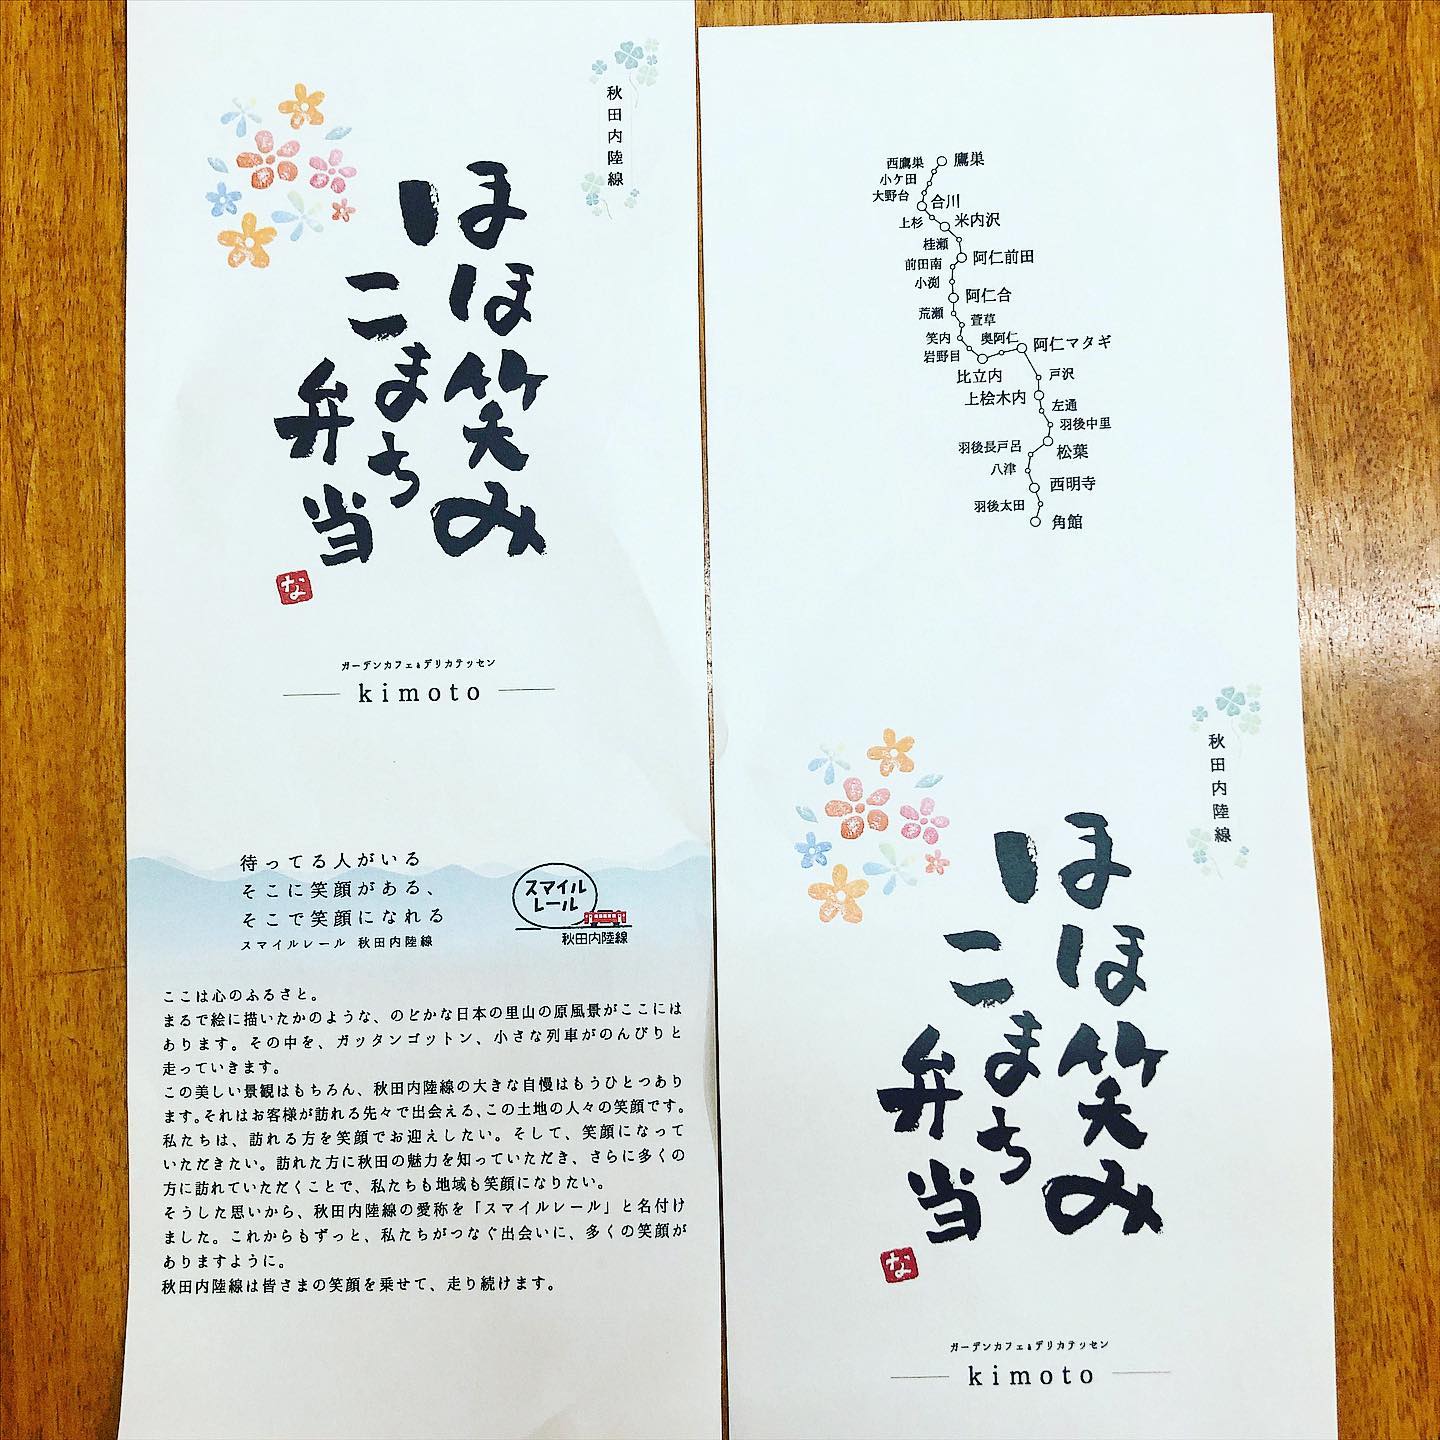 秋田内陸線
ほほ笑み
こまち
弁当
な
ガーデンカフェ&デリカテッセン
kimoto
待ってる人がいる
そこに笑顔がある、
そこで笑顔になれる
スマイルレール 秋田内陸線
スマイル
レール
秋田内陸線
ここは心のふるさと。
まるで絵に描いたかのような、のどかな日本の里山の原風景がここには
あります。その中を、ガッタンゴットン、小さな列車がのんびりと
走っていきます。
この美しい景観はもちろん、秋田内陸線の大きな自慢はもうひとつあり
ます。それはお客様が訪れる先々で出会える、この土地の人々の笑顔です。
私たちは、訪れる方を笑顔でお迎えしたい。そして、笑顔になって
いただきたい。訪れた方に秋田の魅力を知っていただき、さらに多くの
方に訪れていただくことで、私たちも地域も笑顔になりたい。
そうした思いから、秋田内陸線の愛称を「スマイルレール」と名付け
ました。これからもずっと、私たちがつなぐ出会いに、多くの笑顔が
ありますように。
秋田内陸線は皆さまの笑顔を乗せて、走り続けます。
鷹巣
西鷹巣
小ケ田
大野台
合川
上杉
米内沢
桂瀬
阿仁前田
前田南
小渕
阿仁合
荒瀬
萱草
笑内
奥阿仁
阿仁マタギ
岩野目
比立内
戸沢
上桧木内
左通
羽後中里
羽後長戸呂
松葉
八津
西明寺
羽後太田
角館
秋田内陸線
ほほ笑み
こまち
弁当
な
ガーデンカフェ&デリカテッセン
kimoto